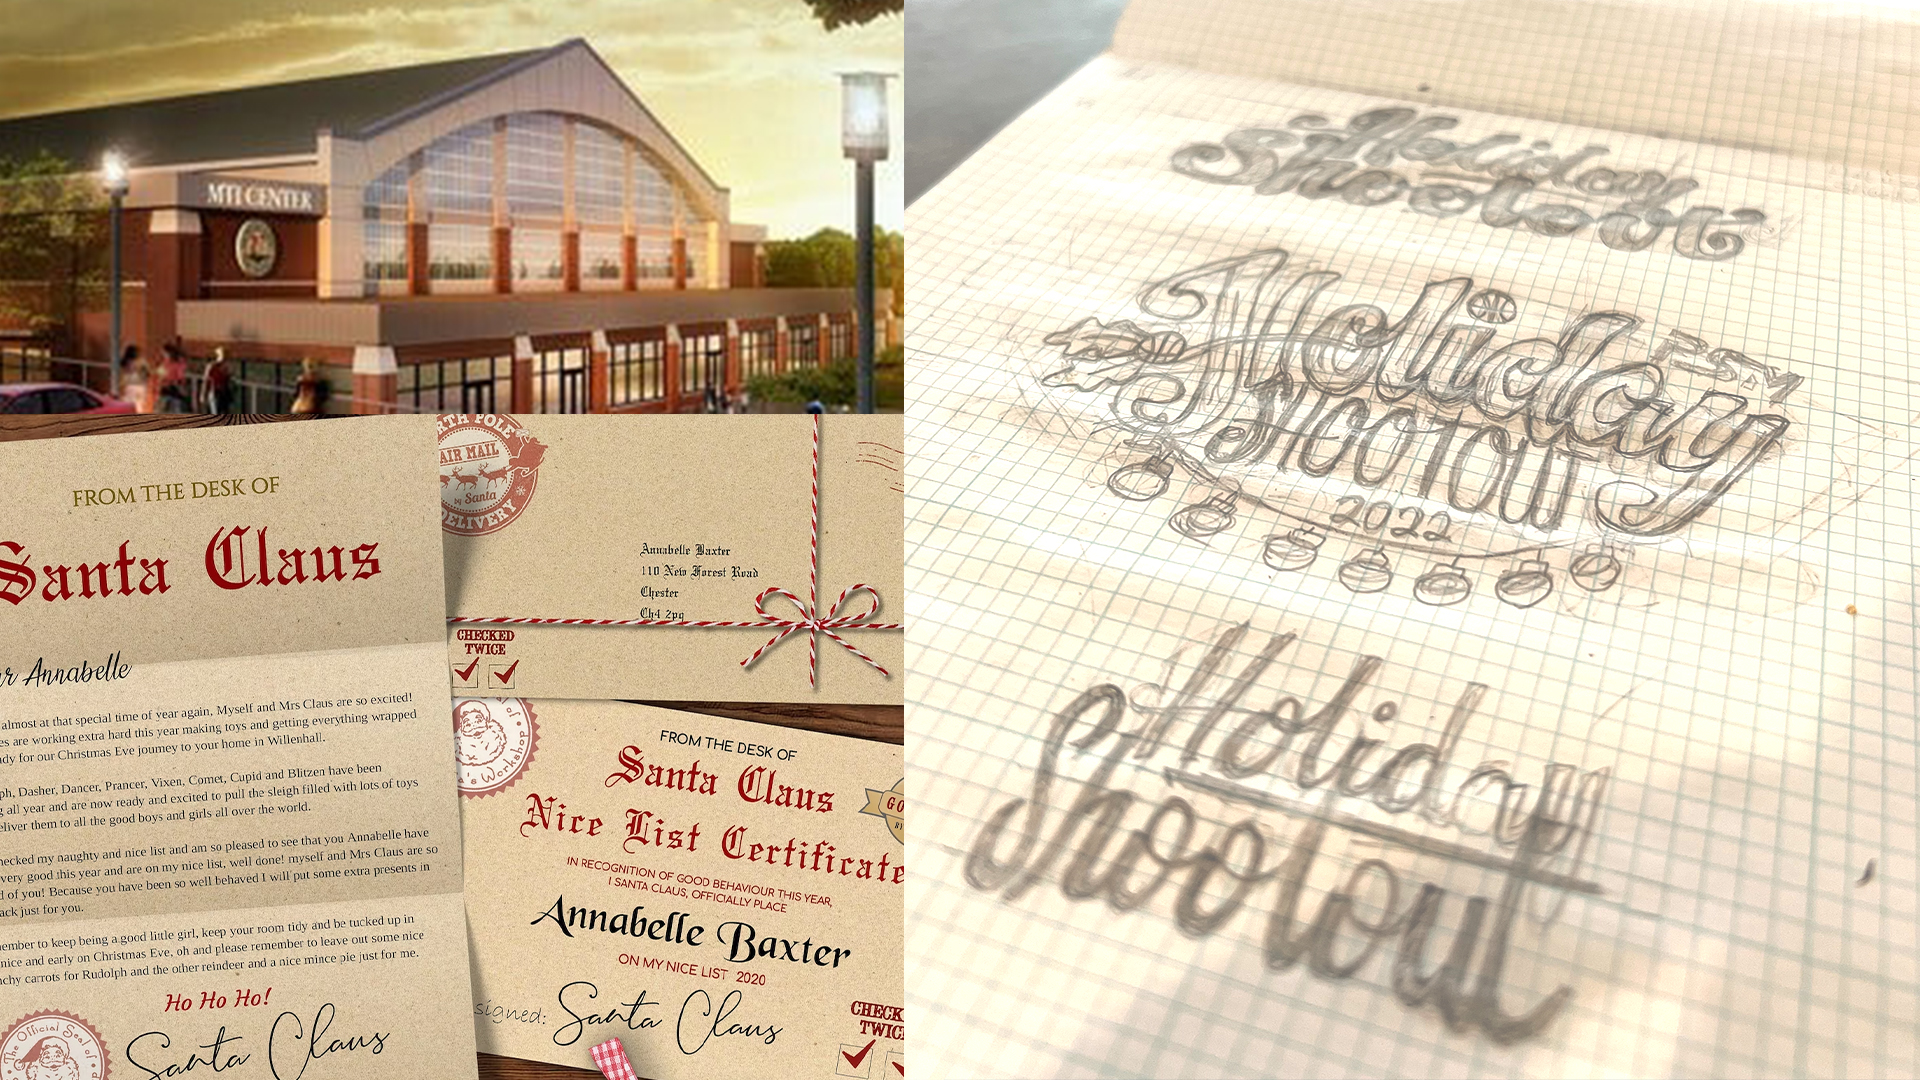 MTI CENTER
FROM THE DESK OF
Santa Claus
Annabelle
almost at that special time of year again, Myself and Mrs Claus are so excited!
es are working extra hard this year making toys and getting everything wrapped
dy for our Christmas Eve journey to your home in Willenhall.
ph, Dasher, Dancer, Prancer, Vixen, Comet, Cupid and Blitzen have been
g all year and are now ready and excited to pull the sleigh filled with lots of toys
eliver them to all the good boys and girls all over the world.
hecked my naughty and nice list and am so pleased to see that you Annabelle have
very good this year and are on my nice list, well done! myself and Mrs Claus are so
d of you! Because you have been so well behaved I will put some extra presents in
ack just for you.
member to keep being a good little girl, keep your room tidy and be tucked up in
nice and early on Christmas Eve, oh and please remember to leave out some nice
nchy carrots for Rudolph and the other reindeer and a nice mince pie just for me.
Ho Ho Ho!
Santa Claus
The Official Seal of
RTH POLE
AIR MAIL
by Santa
DELIVERY
Annabelle Baxter
110 New Forest Road
Chester
Ch4 2pq
CHECKED
TWICE
's Workshop
FROM THE DESK OF
Santa Claus
Nice List Certificate
IN RECOGNITION OF GOOD BEHAVIOUR THIS YEAR,
I SANTA CLAUS, OFFICIALLY PLACE
Annabelle Baxter
ON MY NICE LIST 2020
signed: Santa Claus
GO
BY
CHECK
TWIC
Holiday
Shootout
Holiday
SHOOTOUT
2022
Holiday
Shootout